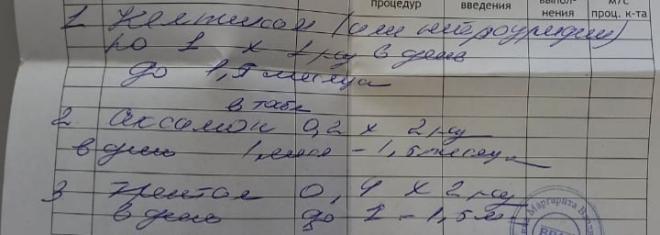 процедур введения выпол- нения м/с проц. к-та
1. Келтикан (или нейроуридин)
по 1 х 1 раз в день
до 1,5 месяца
в табл
2. Аксамон 0,2 х 2 раз
в день 1 мес - 1,5 месяц
3 Трентал 0,4 х 2 раз
в день до 1 - 1,5 м
Маргарита